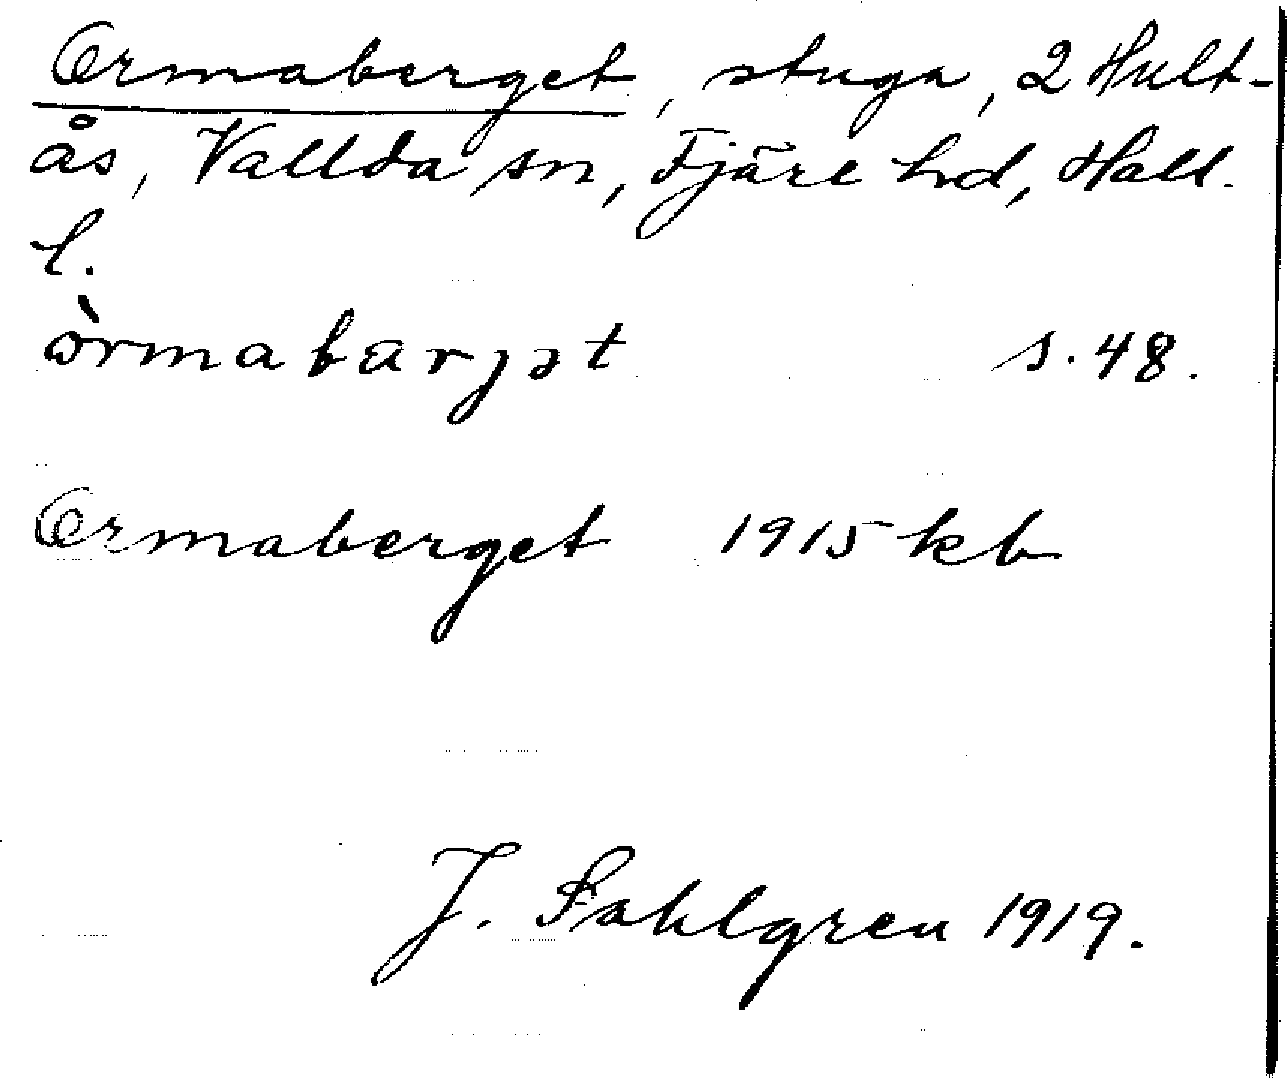 Ormaberget, stuga, 2 Hult-
ås, Vallda sn, Fjäre hd, Hall.
l.
òrmabarjət s. 48.
Ormaberget 1915 kb
J. Sahlgren 1919.